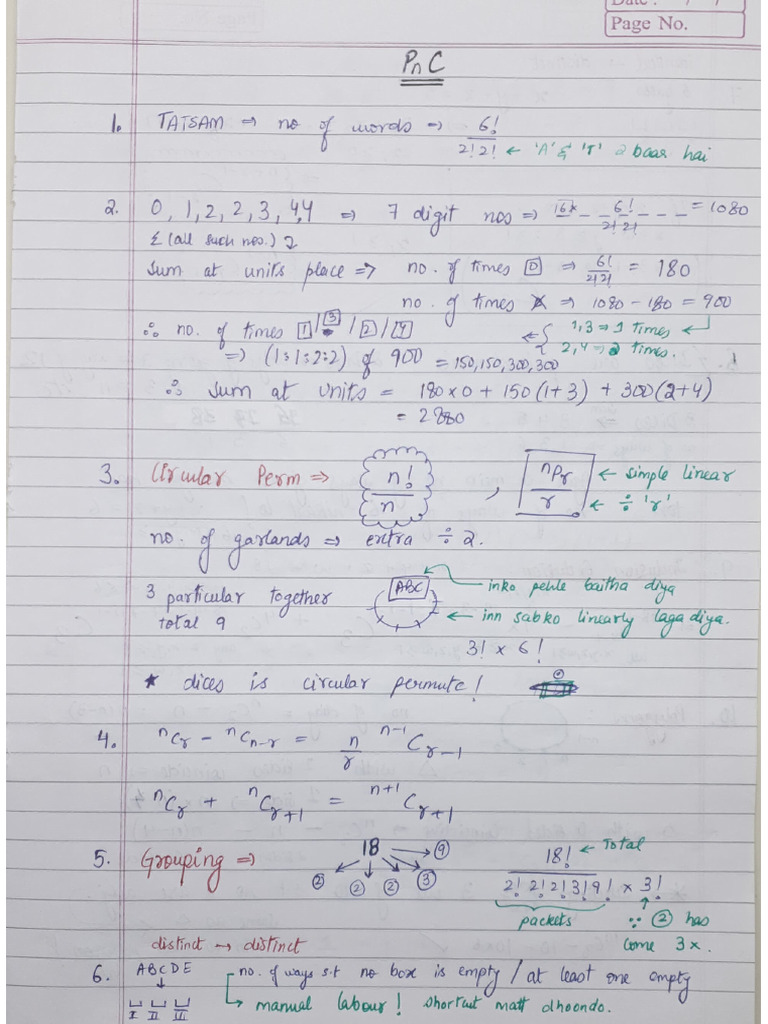 Date :
Page No.
PnC
1. TATSAM ⇒ no of words ⇒ 6!/2!2! ← 'A' & 'T' 2 baar hai
2. 0, 1, 2, 2, 3, 4,4 ⇒ 7 digit nos ⇒ _ _ 6!/2!2! _ _ _ = 1080
Σ (all such nos.)
Sum at units place ⇒ no. of times 0 ⇒ 6!/2!2! = 180
no. of times ⇒ 1080 - 180 = 900
∴ no. of times 1 / 3 / 2 / 4 ← { 1,3 ⇒ 1 times ←
⇒ (1:1:2:2) of 900 = 150,150,300,300 2,4 ⇒ 2 times.
∴ sum at units = 180 x 0 + 150 (1+3) + 300 (2+4)
= 2880
3. Circular Perm ⇒ n!/n , nPr/r ← simple linear
← ÷ 'r'
no. of garlands ⇒ extra ÷ 2.
3 particular together ABC ← inko pehle baitha diya
total 9 ← inn sabko linearly laga diya.
3! x 6!
* dices is circular permute!
4. nCr - nCn-r = n/r n-1Cr-1
nCr + nCr+1 = n+1Cr+1
5. Grouping ⇒ 18 → 9 18! ← Total
2 2 2 3 2! 2! 2! 3! 9! x 3!
packets ∵ 2 has
distinct → distinct come 3x.
6. ABCDE no. of ways s.t no box is empty / at least one empty
I II III → manual labour! shortcut matt dhoondo.